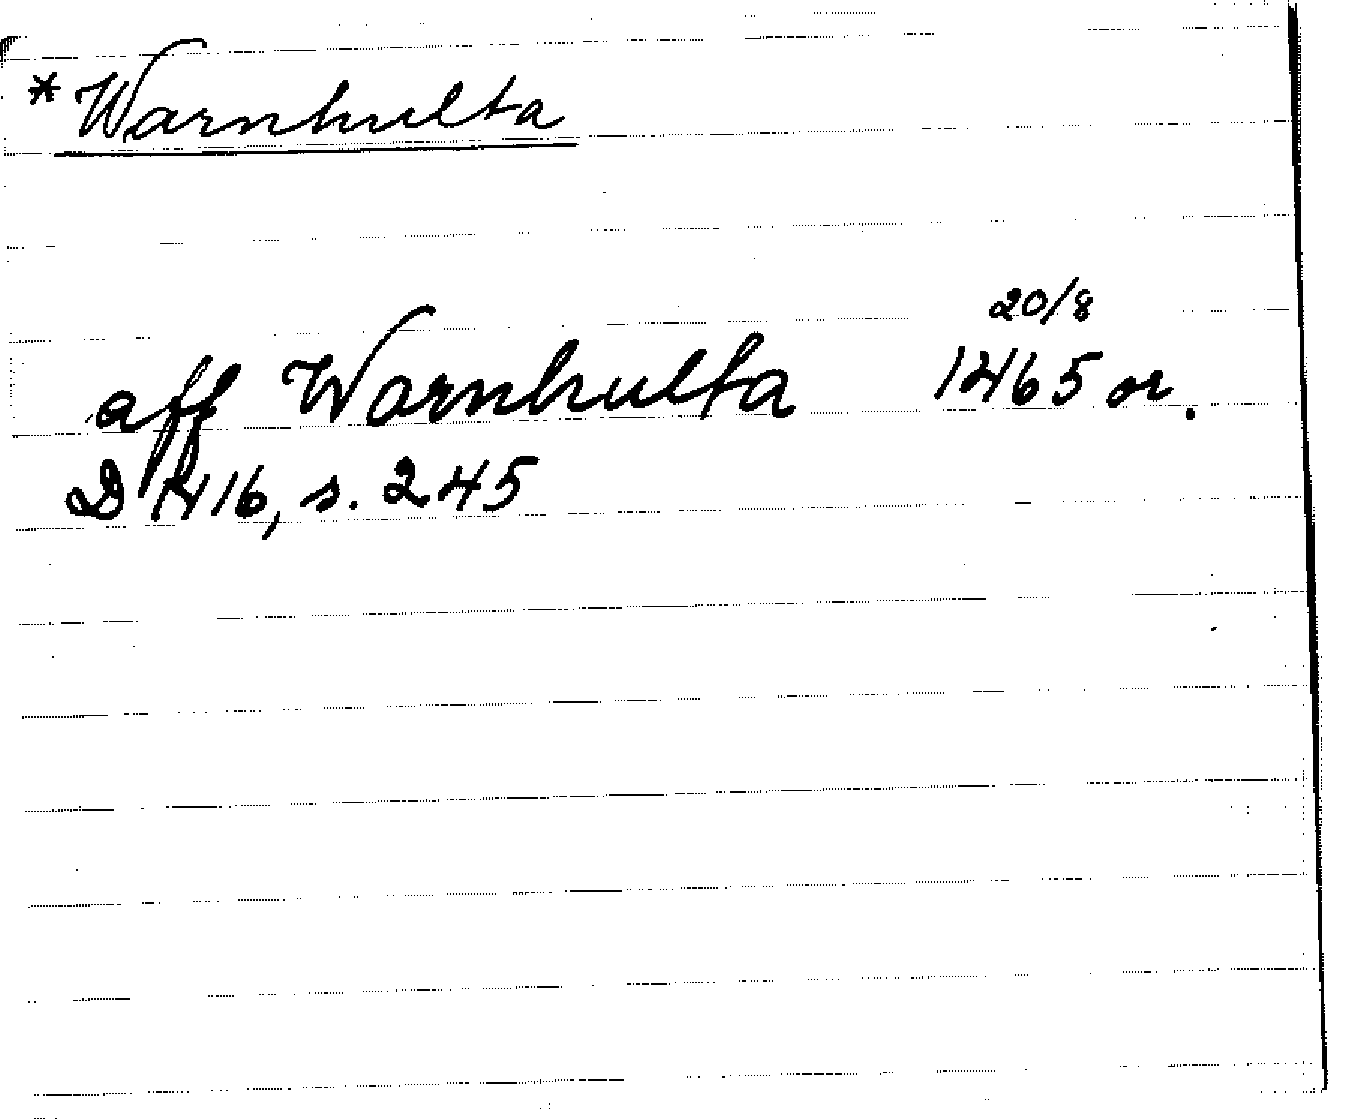 *Warnhulta
20/8
aff Warnhulta 1465 or.
D 1416, s. 245